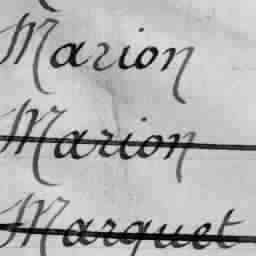 Marion
Marion
Marquet